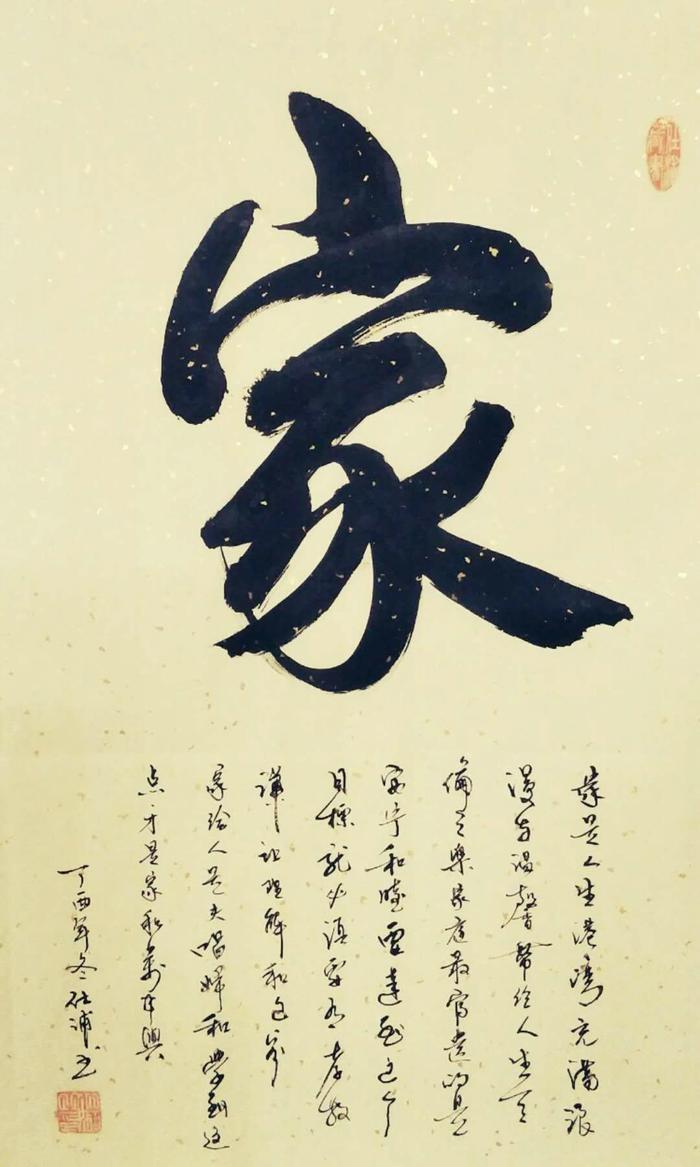 家
家是人生港湾充满浪
漫与温馨带给人生天
倫之樂家庭最富贵的是
安宁和睦要達到这个
目標就必須要有孝敬
謙让理解和包容
家给人是夫唱婦和做到这
点才是家和萬事興
丁酉年冬仕浦书